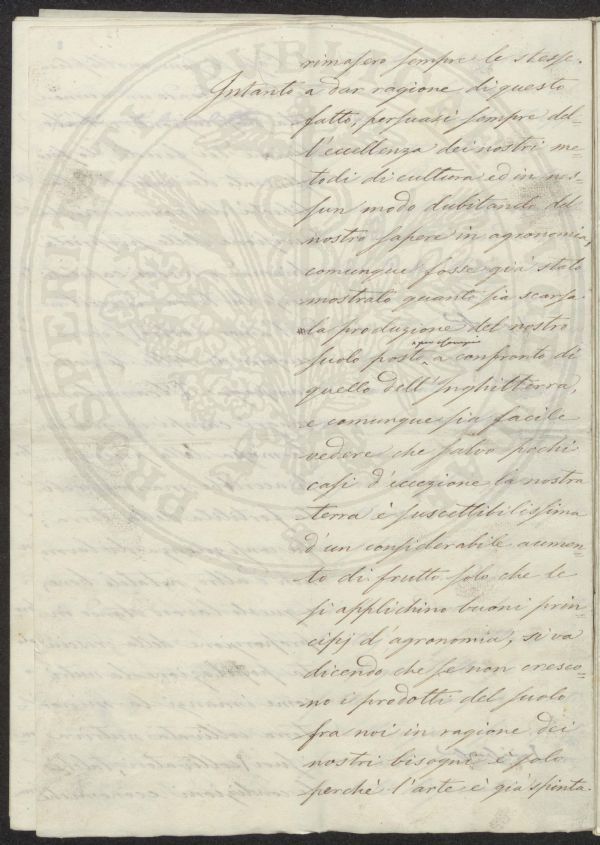 rimasero sempre le stesse.
Intanto a dar ragione di questo
fatto, persuasi sempre del-
l'eccellenza dei nostri me-
todi di cultura ed in nes-
sun modo dubitando del
nostro sapere in agronomia,
comunque fosse già stato
mostrato quanto sia scarsa
la produzione del nostro
suolo posto a confronto di
quello dell'Inghilterra,
e comunque sia facile
vedere che salvo pochi
casi d'eccezione la nostra
terra è suscettibilissima
d'un considerabile aumen-
to di frutto solo che le
si applichino buoni prin-
cipj d'agronomia, si va
dicendo che se non cresco-
no i prodotti del suolo
fra noi in ragione dei
nostri bisogni è solo
perchè l'arte è già spinta
PROSPERITATI PUBLICAE